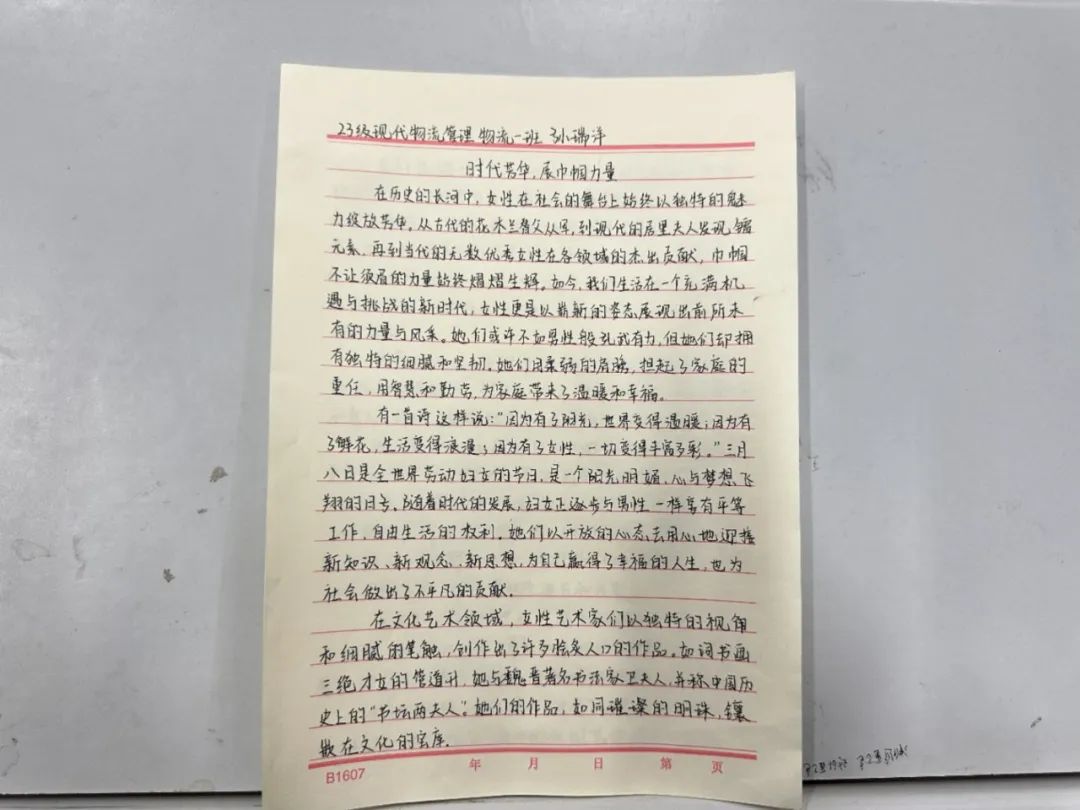 23级现代物流管理 物流一班 孙瑞洋
时代芳华,展巾帼力量
在历史的长河中,女性在社会的舞台上始终以独特的魅
力绽放芳华。从古代的花木兰替父从军,到现代的居里夫人发现镭
元素,再到当代的无数优秀女性在各领域的杰出贡献,巾帼
不让须眉的力量始终熠熠生辉。如今,我们生活在一个充满机
遇与挑战的新时代,女性更是以崭新的姿态展现出前所未
有的力量与风采。她们或许不如男性般孔武有力,但她们却拥
有独特的细腻和坚韧。她们用柔弱的肩膀,担起了家庭的
重任,用智慧和勤劳,为家庭带来了温暖和幸福。
有一首诗这样说:“因为有了阳光,世界变得温暖;因为有
了鲜花,生活变得浪漫;因为有了女性,一切变得丰富多彩。”三月
八日是全世界劳动妇女的节日,是一个阳光明媚、心与梦想飞
翔的日子。随着时代的发展,妇女正逐步与男性一样享有平等
工作,自由生活的权利。她们以开放的心态去用心地迎接
新知识、新观念、新思想,为自己赢得了幸福的人生,也为
社会做出了不平凡的贡献。
在文化艺术领域,女性艺术家们以独特的视角
和细腻的笔触,创作出了许多脍炙人口的作品。如词书画
三绝才女的管道升,她与魏晋著名书法家卫夫人,并称中国历
史上的“书坛两夫人”。她们的作品,如同璀璨的明珠,镶
嵌在文化的宝库。
B1607 年 月 日 第 页